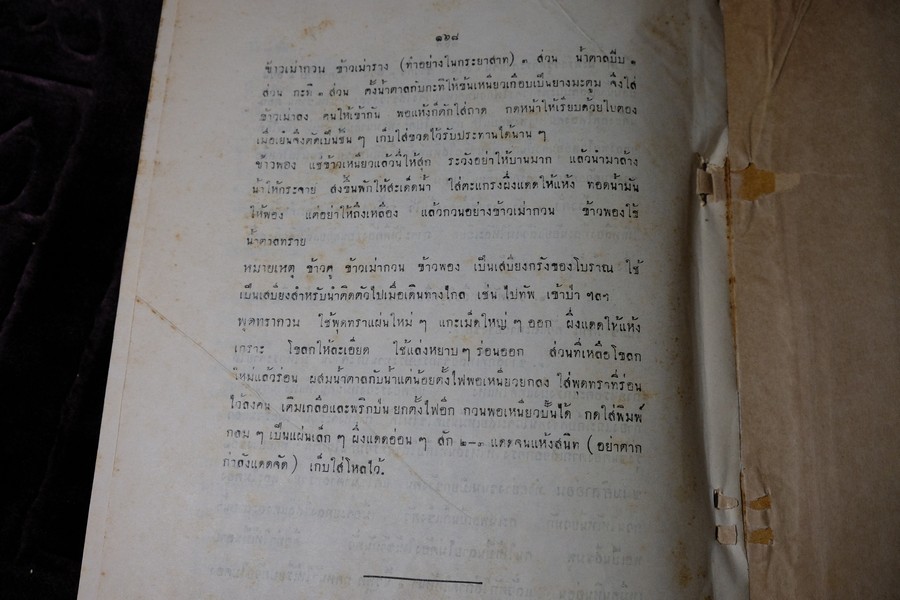 ๑๖๘
ข้าวเม่ากวน ข้าวเม่าราง (ทำอย่างในกระยาสาท) ๓ ส่วน น้ำตาลปีบ ๑
ส่วน กะทิ ๓ ส่วน ตั้งน้ำตาลกับกะทิให้ข้นเหนียวเกือบเป็นยางมะตูม จึงใส่
ข้าวเม่าลง คนให้เข้ากัน พอแห้งก็ตักใส่ถาด กดหน้าให้เรียบด้วยใบตอง
เมื่อเย็นจึงตัดเป็นชิ้น ๆ เก็บใส่ขวดไว้รับประทานได้นาน ๆ
ข้าวพอง แช่ข้าวเหนียวแล้วนึ่ให้สุก ระวังอย่าให้บานมาก แล้วนำมาล้าง
น้ำให้กระจาย สงขึ้นพักให้สะเด็ดน้ำ ใส่ตะแกรงผึ่งแดดให้แห้ง ทอดน้ำมัน
ให้พอง แต่อย่าให้ถึงเหลือง แล้วกวนอย่างข้าวเม่ากวน ข้าวพองใช้
น้ำตาลทราย
หมายเหตุ ข้าวตู ข้าวเม่ากวน ข้าวพอง เป็นเสบียงกรังของโบราณ ใช้
เป็นเสบียงสำหรับนำติดตัวไปเมื่อเดินทางไกล เช่น ไปทัพ เข้าป่า ฯลฯ
พุดทรากวน ใช้พุดทราแผ่นใหม่ ๆ แกะเม็ดใหญ่ ๆ ออก ผึ่งแดดให้แห้ง
เกราะ โขลกให้ละเอียด ใช้แล่งหยาบๆ ร่อนออก ส่วนที่เหลือโขลก
ใหม่แล้วร่อน ผสมน้ำตาลกับน้ำแต่น้อยตั้งไฟพอเหนียวยกลง ใส่พุดทราที่ร่อน
ไว้ลงคน เติมเกลือและพริกป่น ยกตั้งไฟอีก กวนพอเหนียวปั้นได้ กดใส่พิมพ์
กลม ๆ เป็นแผ่นเล็ก ๆ ผึ่งแดดอ่อน ๆ สัก ๒-๓ แดดจนแห้งสนิท (อย่าตาก
กำลังแดดจัด) เก็บใส่โหลไว้.